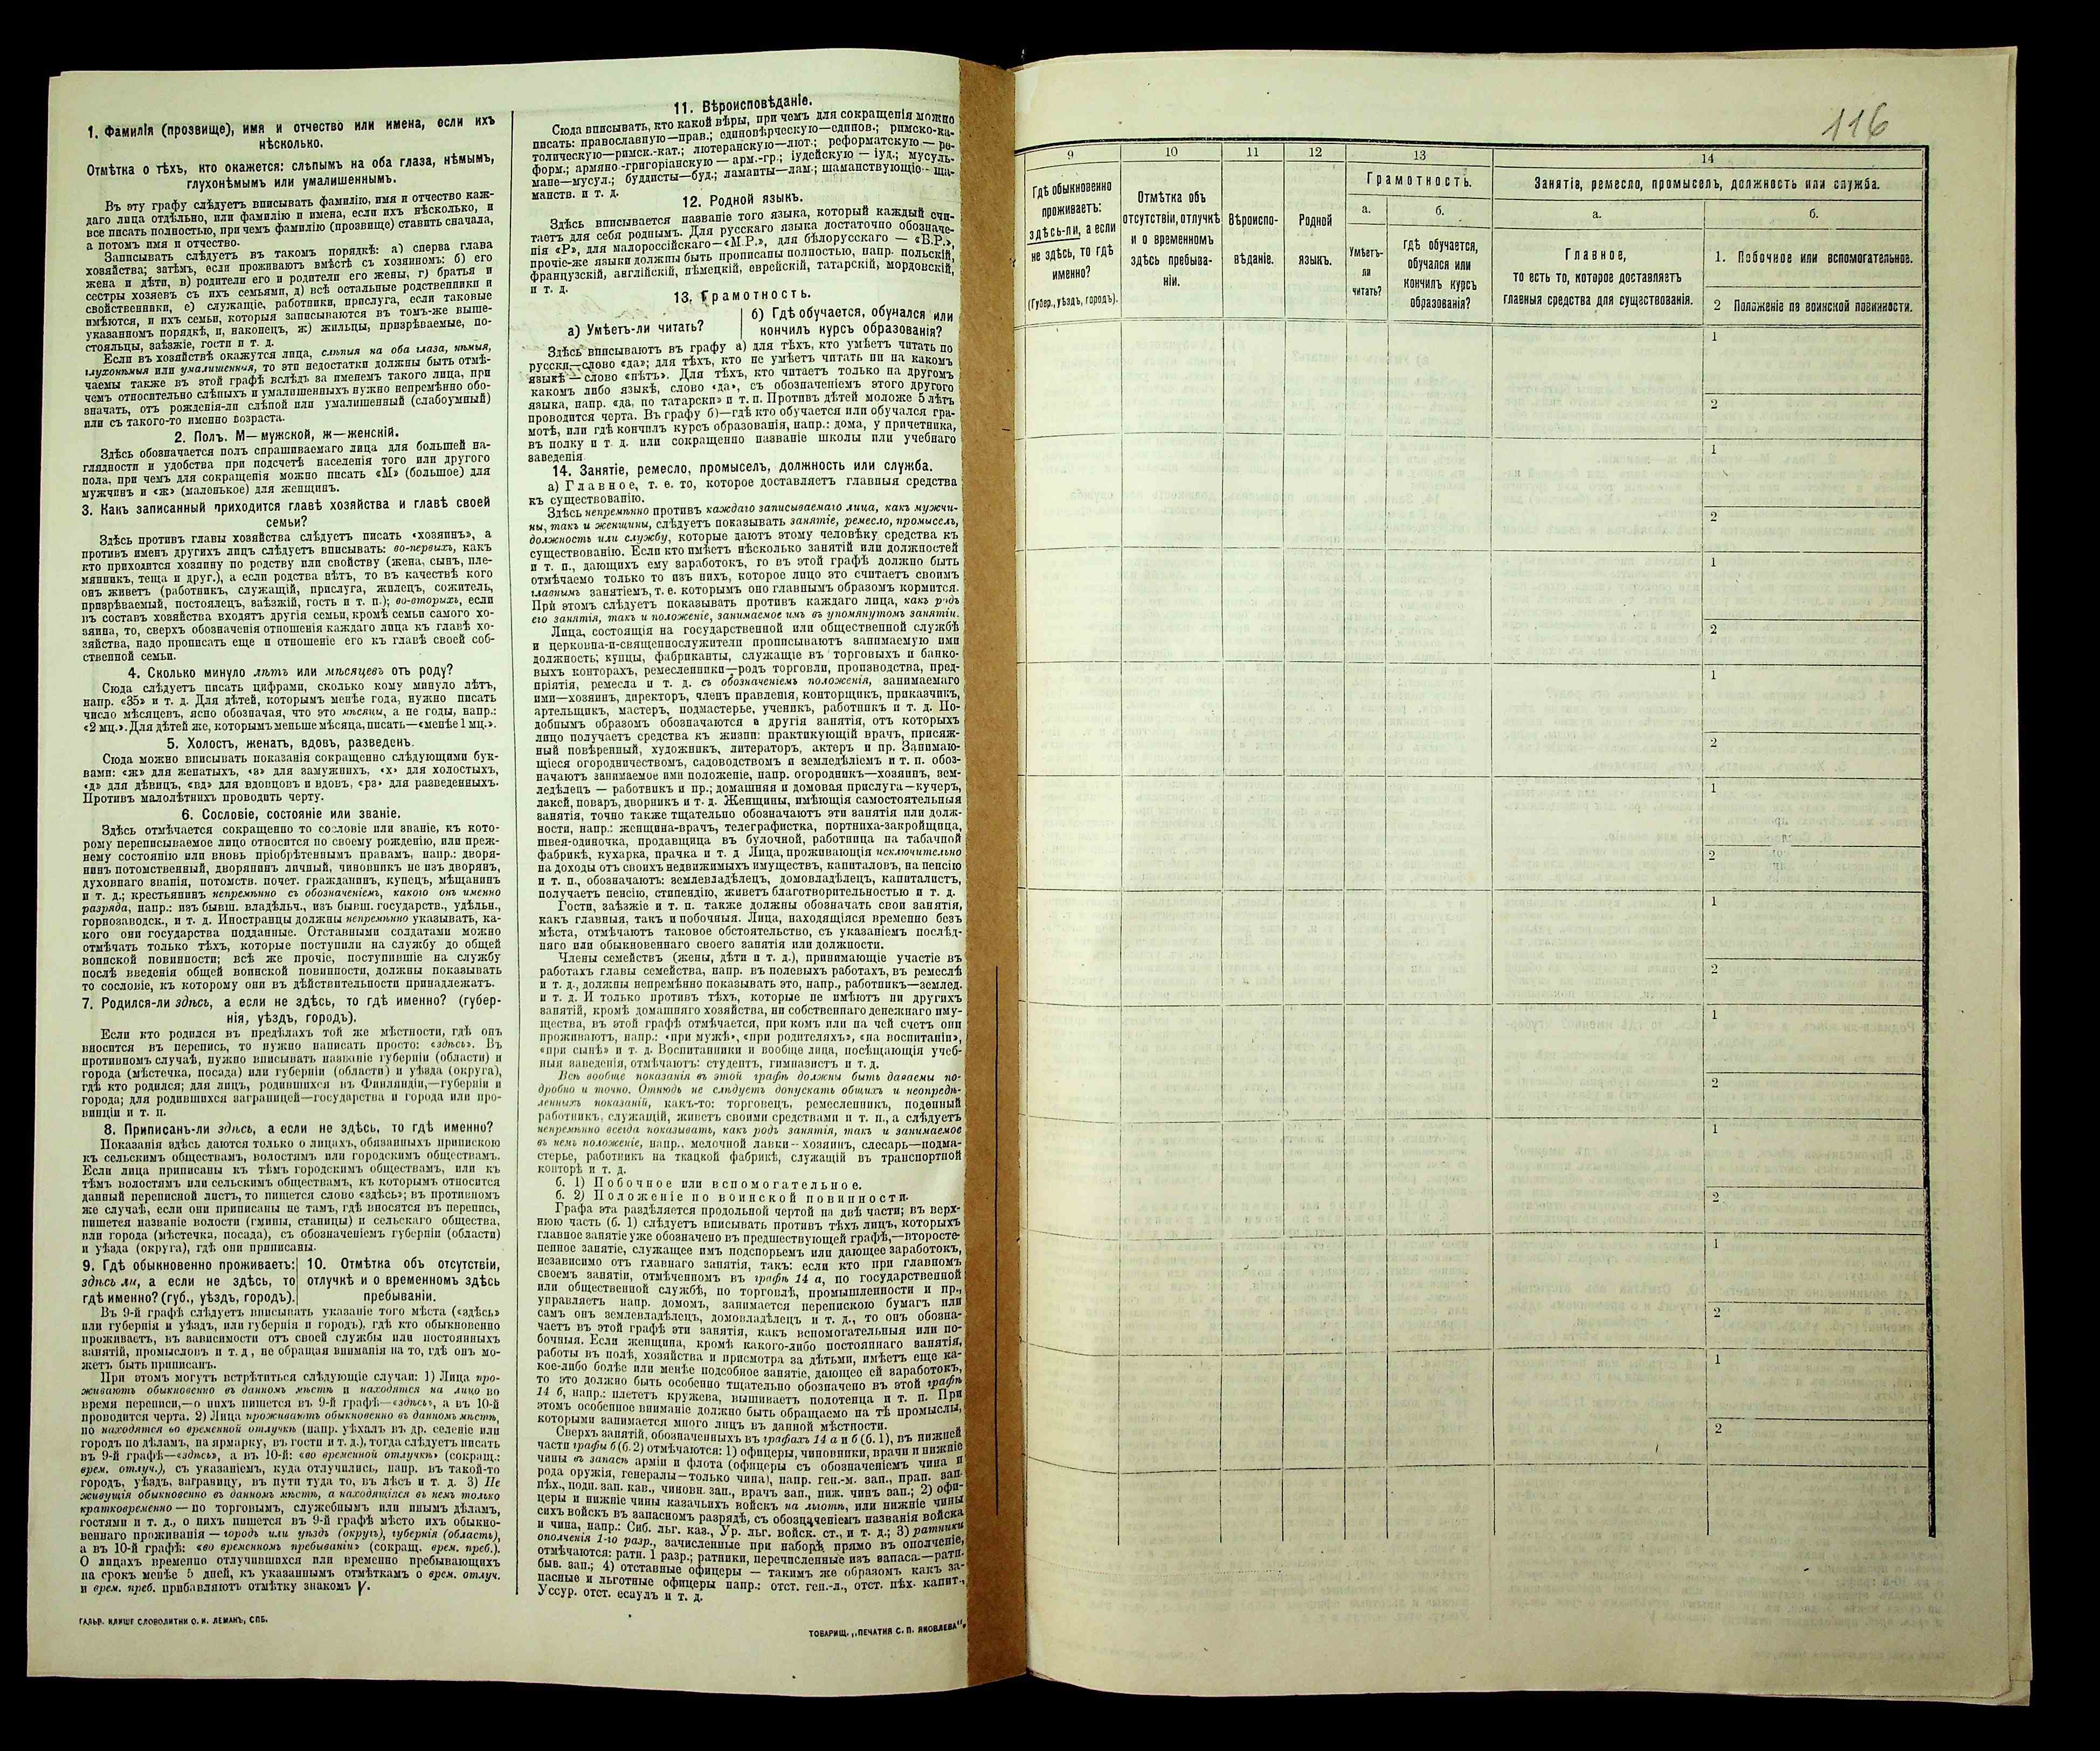 1. Фамилія (прозвище), имя и отчество или имена, если ихъ
нѣсколько.
Отмѣтка о тѣхъ, кто окажется: слѣпымъ на оба глаза, нѣмымъ,
глухонѣмымъ или умалишеннымъ.
Въ эту графу слѣдуетъ вписывать фамилію, имя и отчество каж-
даго лица отдѣльно, или фамилію и имена, если ихъ нѣсколько, и
все писать полностью, при чемъ фамилію (прозвище) ставить сначала,
а потомъ имя и отчество.
Записывать слѣдуетъ въ такомъ порядкѣ: а) сперва глава
хозяйства; затѣмъ, если проживаютъ вмѣстѣ съ хозяиномъ: б) его
жена и дѣти, в) родители его и родители его жены, г) братья и
сестры хозяевъ съ ихъ семьями, д) всѣ остальные родственники и
свойственники, е) служащіе, работники, прислуга, если таковые
имѣются, и ихъ семьи, которыя записываются въ томъ-же выше-
указанномъ порядкѣ, и, наконецъ, ж) жильцы, призрѣваемые, по-
стояльцы, заѣзжіе, гости и т. д.
Если въ хозяйствѣ окажутся лица, слѣпыя на оба глаза, нѣмыя,
глухонѣмыя или умалишенныя, то эти недостатки должны быть отмѣ-
чаемы также въ этой графѣ вслѣдъ за именемъ такого лица, при
чемъ относительно слѣпыхъ и умалишенныхъ нужно непремѣнно обо-
значать, отъ рожденія-ли слѣпой или умалишенный (слабоумный)
или съ такого-то именно возраста.
2. Полъ. М—мужской, ж—женскій.
Здѣсь обозначается полъ спрашиваемаго лица для большей на-
глядности и удобства при подсчетѣ населенія того или другого
пола, при чемъ для сокращенія можно писать «М» (большое) для
мужчинъ и «ж» (маленькое) для женщинъ.
3. Какъ записанный приходится главѣ хозяйства и главѣ своей
семьи?
Здѣсь противъ главы хозяйства слѣдуетъ писать «хозяинъ», а
противъ именъ другихъ лицъ слѣдуетъ вписывать: во-первыхъ, какъ
кто приходится хозяину по родству или свойству (жена, сынъ, пле-
мянникъ, теща и друг.), а если родства нѣтъ, то въ качествѣ кого
онъ живетъ (работникъ, служащій, прислуга, жилецъ, сожитель,
призрѣваемый, постоялецъ, заѣзжій, гость и т. п.); во-вторыхъ, если
въ составъ хозяйства входятъ другія семьи, кромѣ семьи самого хо-
зяина, то, сверхъ обозначенія отношенія каждаго лица къ главѣ хо-
зяйства, надо прописать еще и отношеніе его къ главѣ своей соб-
ственной семьи.
4. Сколько минуло лѣтъ или мѣсяцевъ отъ роду?
Сюда слѣдуетъ писать цифрами, сколько кому минуло лѣтъ,
напр. «35» и т. д. Для дѣтей, которымъ менѣе года, нужно писать
число мѣсяцевъ, ясно обозначая, что это мѣсяцы, а не годы, напр.:
«2 мц.». Для дѣтей же, которымъ меньше мѣсяца, писать—«менѣе 1 мц.».
5. Холостъ, женатъ, вдовъ, разведенъ.
Сюда можно вписывать показанія сокращенно слѣдующими бук-
вами: «ж» для женатыхъ, «з» для замужнихъ, «х» для холостыхъ,
«д» для дѣвицъ, «вд» для вдовцовъ и вдовъ, «рз» для разведенныхъ.
Противъ малолѣтнихъ проводить черту.
6. Сословіе, состояніе или званіе.
Здѣсь отмѣчается сокращенно то сословіе или званіе, къ кото-
рому переписываемое лицо относится по своему рожденію, или преж-
нему состоянію или вновь пріобрѣтеннымъ правамъ, напр.: дворя-
нинъ потомственный, дворянинъ личный, чиновникъ не изъ дворянъ,
духовнаго званія, потомств. почет. гражданинъ, купецъ, мѣщанинъ
и т. д.; крестьянинъ непремѣнно съ обозначеніемъ, какого онъ именно
разряда, напр.: изъ бывш. владѣльч., изъ бывш. государств., удѣльн.,
горнозаводск., и т. д. Иностранцы должны непремѣнно указывать, ка-
кого они государства подданные. Отставными солдатами можно
отмѣчать только тѣхъ, которые поступили на службу до общей
воинской повинности; всѣ же прочіе, поступившіе на службу
послѣ введенія общей воинской повинности, должны показывать
то сословіе, къ которому они въ дѣйствительности принадлежатъ.
7. Родился-ли здѣсь, а если не здѣсь, то гдѣ именно? (губер-
нія, уѣздъ, городъ).
Если кто родился въ предѣлахъ той же мѣстности, гдѣ онъ
вносится въ перепись, то нужно написать просто: «здѣсь». Въ
противномъ случаѣ, нужно вписывать названіе губерніи (области) и
города (мѣстечка, посада) или губерніи (области) и уѣзда (округа),
гдѣ кто родился; для лицъ, родившихся въ Финляндіи,—губерніи и
города; для родившихся заграницей—государства и города или про-
винціи и т. п.
8. Приписанъ-ли здѣсь, а если не здѣсь, то гдѣ именно?
Показанія здѣсь даются только о лицахъ, обязанныхъ припискою
къ сельскимъ обществамъ, волостямъ или городскимъ обществамъ.
Если лица приписаны къ тѣмъ городскимъ обществамъ, или къ
тѣмъ волостямъ или сельскимъ обществамъ, къ которымъ относится
данный переписной листъ, то пишется слово «здѣсь»; въ противномъ
же случаѣ, если они приписаны не тамъ, гдѣ вносятся въ перепись,
пишется названіе волости (гмины, станицы) и сельскаго общества,
или города (мѣстечка, посада), съ обозначеніемъ губерніи (области)
и уѣзда (округа), гдѣ они приписаны.
9. Гдѣ обыкновенно проживаетъ:
здѣсь ли, а если не здѣсь, то
гдѣ именно? (губ., уѣздъ, городъ).
10. Отмѣтка объ отсутствіи,
отлучкѣ и о временномъ здѣсь
пребываніи.
Въ 9-й графѣ слѣдуетъ вписывать указаніе того мѣста («здѣсь»
или губернія и уѣздъ, или губернія и городъ), гдѣ кто обыкновенно
проживаетъ, въ зависимости отъ своей службы или постоянныхъ
занятій, промысловъ и т. д, не обращая вниманія на то, гдѣ онъ мо-
жетъ быть приписанъ.
При этомъ могутъ встрѣтиться слѣдующіе случаи: 1) Лица про-
живаютъ обыкновенно въ данномъ мѣстѣ и находятся на лицо во
время переписи,—о нихъ пишется въ 9-й графѣ—«здѣсь», а въ 10-й
проводится черта. 2) Лица проживаютъ обыкновенно въ данномъ мѣстѣ,
но находятся во временной отлучкѣ (напр. уѣхалъ въ др. селеніе или
городъ по дѣламъ, на ярмарку, въ гости и т. д.), тогда слѣдуетъ писать
въ 9-й графѣ—«здѣсь», а въ 10-й: «во временной отлучкѣ» (сокращ.:
врем. отлуч.), съ указаніемъ, куда отлучились, напр. въ такой-то
городъ, уѣздъ, заграницу, въ пути туда то, въ лѣсъ и т. д. 3) Не
живущія обыкновенно въ данномъ мѣстѣ, а находящіяся въ немъ только
кратковременно—по торговымъ, служебнымъ или инымъ дѣламъ,
гостями и т. д., о нихъ пишется въ 9-й графѣ мѣсто ихъ обыкно-
веннаго проживанія—городъ или уѣздъ (округъ), губернія (область),
а въ 10-й графѣ: «во временномъ пребываніи» (сокращ. врем. преб.).
О лицахъ временно отлучившихся или временно пребывающихъ
на срокъ менѣе 5 дней, къ указаннымъ отмѣткамъ о врем. отлуч.
и врем. преб. прибавляютъ отмѣтку знакомъ V.
ГАЛЬВ. КЛИШЕ СЛОВОЛИТНИ О. И. ЛЕМАНЪ, СПБ.
11. Вѣроисповѣданіе.
Сюда вписывать, кто какой вѣры, при чемъ для сокращенія можно
писать: православную—прав.; единовѣрческую—единов.; римско-ка-
толическую—римск.-кат.; лютеранскую—лют.; реформатскую—ре-
форм.; армяно-григоріанскую—арм.-гр.; іудейскую—іуд.; мусуль-
мане—мусул.; буддисты—буд.; ламаиты—лам.; шаманствующіе—ша-
манств. и т. д.
12. Родной языкъ.
Здѣсь вписывается названіе того языка, который каждый счи-
таетъ для себя роднымъ. Для русскаго языка достаточно обозначе-
нія «Р», для малороссійскаго—«М.Р.», для бѣлорусскаго — «Б.Р.»,
прочіе-же языки должны быть прописаны полностью, напр. польскій,
французскій, англійскій, нѣмецкій, еврейскій, татарскій, мордовскій,
и т. д.
13. Грамотность.
а) Умѣетъ-ли читать?
б) Гдѣ обучается, обучался или
кончилъ курсъ образованія?
Здѣсь вписываютъ въ графу а) для тѣхъ, кто умѣетъ читать по
русски—слово «да»; для тѣхъ, кто не умѣетъ читать ни на какомъ
языкѣ—слово «нѣтъ». Для тѣхъ, кто читаетъ только на другомъ
какомъ либо языкѣ, слово «да», съ обозначеніемъ этого другого
языка, напр. «да, по татарски» и т. п. Противъ дѣтей моложе 5 лѣтъ
проводится черта. Въ графу б)—гдѣ кто обучается или обучался гра-
мотѣ, или гдѣ кончилъ курсъ образованія, напр.: дома, у причетника,
въ полку и т. д. или сокращенно названіе школы или учебнаго
заведенія
14. Занятіе, ремесло, промыселъ, должность или служба.
а) Главное, т. е. то, которое доставляетъ главныя средства
къ существованію.
Здѣсь непремѣнно противъ каждаго записываемаго лица, какъ мужчи-
ны, такъ и женщины, слѣдуетъ показывать занятіе, ремесло, промыселъ,
должность или службу, которые даютъ этому человѣку средства къ
существованію. Если кто имѣетъ нѣсколько занятій или должностей
и т. п., дающихъ ему заработокъ, то въ этой графѣ должно быть
отмѣчаемо только то изъ нихъ, которое лицо это считаетъ своимъ
главнымъ занятіемъ, т. е. которымъ оно главнымъ образомъ кормится.
При этомъ слѣдуетъ показывать противъ каждаго лица, какъ родъ
его занятія, такъ и положеніе, занимаемое имъ въ упомянутомъ занятіи.
Лица, состоящія на государственной или общественной службѣ
и церковно-и-священнослужители прописываютъ занимаемую ими
должность; купцы, фабриканты, служащіе въ торговыхъ и банко-
выхъ конторахъ, ремесленники—родъ торговли, производства, пред-
пріятія, ремесла и т. д. съ обозначеніемъ положенія, занимаемаго
ими—хозяинъ, директоръ, членъ правленія, конторщикъ, приказчикъ,
артельщикъ, мастеръ, подмастерье, ученикъ, работникъ и т. д. По-
добнымъ образомъ обозначаются и другія занятія, отъ которыхъ
лицо получаетъ средства къ жизни: практикующій врачъ, присяж-
ный повѣренный, художникъ, литераторъ, актеръ и пр. Занимаю-
щіеся огородничествомъ, садоводствомъ и земледѣліемъ и т. п. обоз-
начаютъ занимаемое ими положеніе, напр. огородникъ—хозяинъ, зем-
ледѣлецъ — работникъ и пр.; домашняя и домовая прислуга—кучеръ,
лакей, поваръ, дворникъ и т. д. Женщины, имѣющія самостоятельныя
занятія, точно также тщательно обозначаютъ эти занятія или долж-
ности, напр.: женщина-врачъ, телеграфистка, портниха-закройщица,
швея-одиночка, продавщица въ булочной, работница на табачной
фабрикѣ, кухарка, прачка и т. д Лица, проживающія исключительно
на доходы отъ своихъ недвижимыхъ имуществъ, капиталовъ, на пенсію
и т. п., обозначаютъ: землевладѣлецъ, домовладѣлецъ, капиталистъ,
получаетъ пенсію, стипендію, живетъ благотворительностью и т. д.
Гости, заѣзжіе и т. п. также должны обозначать свои занятія,
какъ главныя, такъ и побочныя. Лица, находящіяся временно безъ
мѣста, отмѣчаютъ таковое обстоятельство, съ указаніемъ послѣд-
няго или обыкновеннаго своего занятія или должности.
Члены семействъ (жены, дѣти и т. д.), принимающіе участіе въ
работахъ главы семейства, напр. въ полевыхъ работахъ, въ ремеслѣ
и т. д., должны непремѣнно показывать это, напр., работникъ—землед.
и т. д. И только противъ тѣхъ, которые не имѣютъ ни другихъ
занятій, кромѣ домашняго хозяйства, ни собственнаго денежнаго иму-
щества, въ этой графѣ отмѣчается, при комъ или на чей счетъ они
проживаютъ, напр.: «при мужѣ», «при родителяхъ», «на воспитаніи»,
«при сынѣ» и т. д. Воспитанники и вообще лица, посѣщающія учеб-
ныя заведенія, отмѣчаютъ: студентъ, гимназистъ и т. д.
Всѣ вообще показанія въ этой графѣ должны быть даваемы по-
дробно и точно. Отнюдь не слѣдуетъ допускать общихъ и неопредѣ-
ленныхъ показаній, какъ-то: торговецъ, ремесленникъ, поденный
работникъ, служащій, живетъ своими средствами и т. п., а слѣдуетъ
непремѣнно всегда показывать, какъ родъ занятія, такъ и занимаемое
въ немъ положеніе, напр., мелочной лавки—хозяинъ, слесарь—подма-
стерье, работникъ на ткацкой фабрикѣ, служащій въ транспортной
конторѣ и т. д.
б. 1) Побочное или вспомогательное.
б. 2) Положеніе по воинской повинности.
Графа эта раздѣляется продольной чертой на двѣ части; въ верх-
нюю часть (б. 1) слѣдуетъ вписывать противъ тѣхъ лицъ, которыхъ
главное занятіе уже обозначено въ предшествующей графѣ,—второсте-
пенное занятіе, служащее имъ подспорьемъ или дающее заработокъ,
независимо отъ главнаго занятія, такъ: если кто при главномъ
своемъ занятіи, отмѣченномъ въ графѣ 14 а, по государственной
или общественной службѣ, по торговлѣ, промышленности и пр.,
управляетъ напр. домомъ, занимается перепискою бумагъ или
самъ онъ землевладѣлецъ, домовладѣлецъ и т. д., то онъ обозна-
чаетъ въ этой графѣ эти занятія, какъ вспомогательныя или по-
бочныя. Если женщина, кромѣ какого-либо постояннаго занятія,
работы въ полѣ, хозяйства и присмотра за дѣтьми, имѣетъ еще ка-
кое-либо болѣе или менѣе подсобное занятіе, дающее ей заработокъ,
то это должно быть особенно тщательно обозначено въ этой графѣ
14 б, напр.: плететъ кружева, вышиваетъ полотенца и т. п. При
этомъ особенное вниманіе должно быть обращаемо на тѣ промыслы,
которыми занимается много лицъ въ данной мѣстности.
Сверхъ занятій, обозначенныхъ въ графахъ 14 а и б (б. 1), въ нижней
части графы б (б. 2) отмѣчаются: 1) офицеры, чиновники, врачи и нижніе
чины въ запасѣ арміи и флота (офицеры съ обозначеніемъ чина и
рода оружія, генералы—только чина), напр. ген.-м. зап., прап. зап.
пѣх., подп. зап. кав., чиновн. зап., врачъ зап., ниж. чинъ зап.; 2) офи-
церы и нижніе чины казачьихъ войскъ на льготѣ, или нижніе чины
сихъ войскъ въ запасномъ разрядѣ, съ обозначеніемъ названія войска
и чина, напр.: Сиб. льг. каз., Ур. льг. войск. ст., и т. д.; 3) ратники
ополченія 1-го разр., зачисленные при наборѣ прямо въ ополченіе,
отмѣчаются: ратн. 1 разр.; ратники, перечисленные изъ запаса.—ратн.
быв. зап.; 4) отставные офицеры — такимъ же образомъ какъ за-
пасные и льготные офицеры напр.: отст. ген.-л., отст. пѣх. капит.,
Уссур. отст. есаулъ и т. д.
ТОВАРИЩ. „ПЕЧАТНЯ С. П. ЯКОВЛЕВА“,
116
9
10
11
12
13
14
Гдѣ обыкновенно
проживаетъ:
здѣсь-ли, а если
не здѣсь, то гдѣ
именно?
(Губер., уѣздъ, городъ).
Отмѣтка объ
отсутствіи, отлучкѣ
и о временномъ
здѣсь пребыва-
ніи.
Вѣроиспо-
вѣданіе.
Родной
языкъ.
Грамотность.
а.
Умѣетъ-
ли
читать?
б.
гдѣ обучается,
обучался или
кончилъ курсъ
образованія?
Занятіе, ремесло, промыселъ, должность или служба.
а.
Главное,
то есть то, которое доставляетъ
главныя средства для существованія.
б.
1. Побочное или вспомогательное.
2 Положеніе по воинской повинности.
1
2
1
2
1
2
1
2
1
2
1
2
1
2
1
2
1
2
1
2